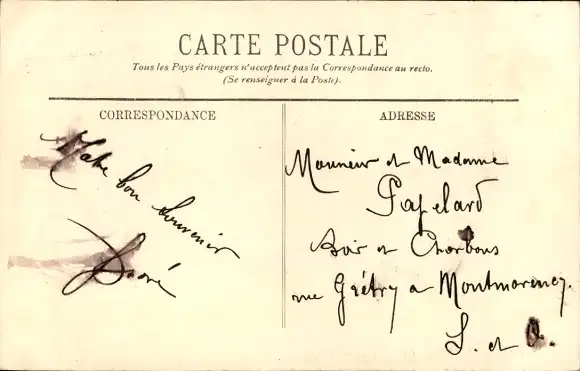 CARTE POSTALE
Tous les Pays étrangers n'acceptent pas la Correspondance au recto.
(Se renseigner à la Poste).
CORRESPONDANCE
bon souvenir
ADRESSE
Monsieur et Madame
Papelard
Bois et Charbons
rue Grétry a Montmorency.
S. et O.